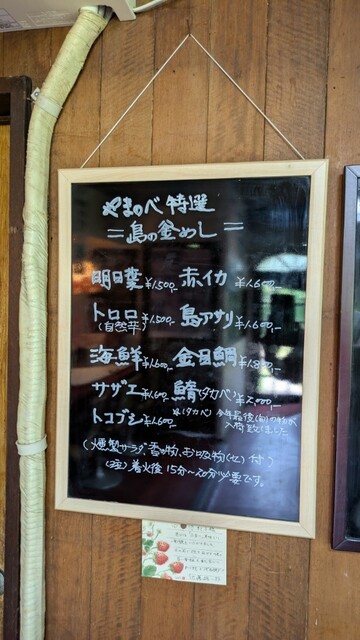 やまのべ 特選
＝島の釜めし＝
明日葉 ¥1,500,- 赤イカ ¥1,600,-
トロロ ¥1,500,- 島アサリ ¥1,600,-
(自然芋)
海鮮 ¥1,600,- 金目鯛 ¥1,800,-
サザエ ¥1,600,- (タカベ) ¥2,000,-
トコブシ ¥1,600,- ※(タカベ) 今年最後(旬)の物が
入荷致しました
(燻製サラダ 香の物、お吸物(七) 付)
着火後 15分〜20分 必要です。